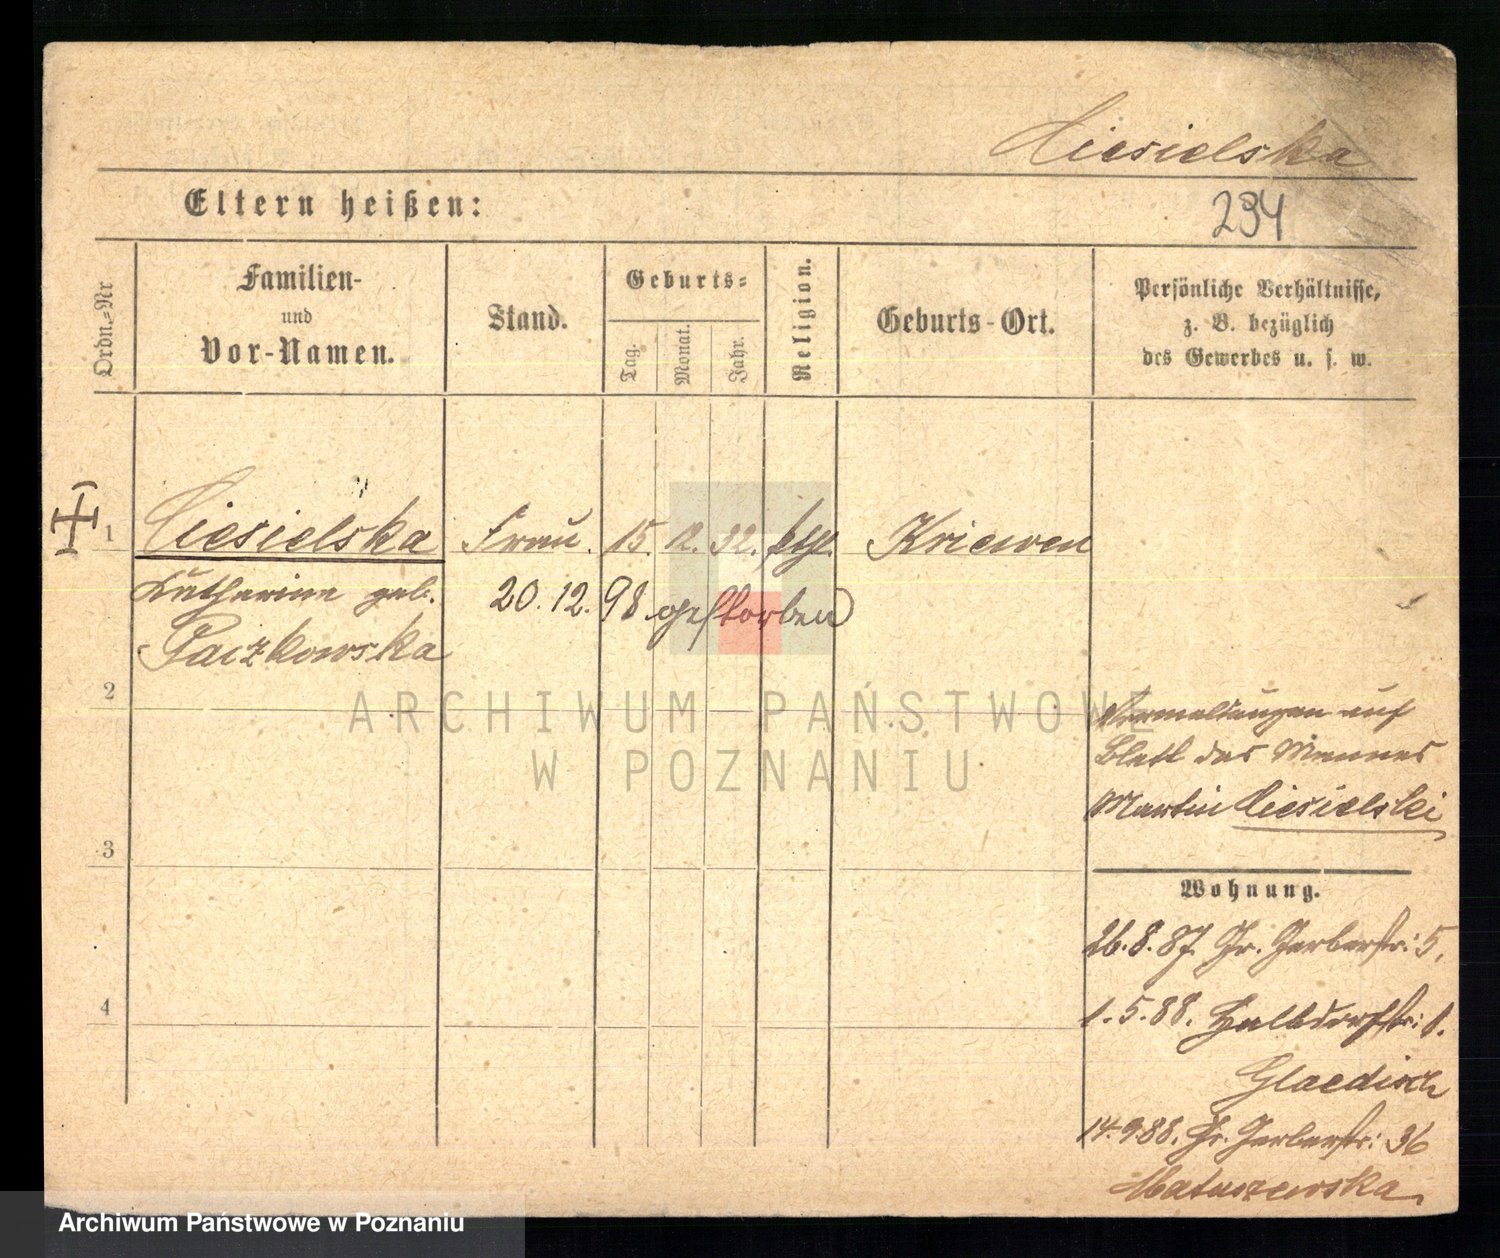 Ciesielska
Eltern heißen:
234
Ordn.-Nr
Familien-
und
Vor-Namen.
Stand.
Geburts-
Tag.
Monat.
Jahr.
Religion.
Geburts-Ort.
Persönliche Verhältnisse,
z. B. bezüglich
des Gewerbes u. s. w.
1
Ciesielska
Frau
15. 12. 32. kth.
Kriewen
Katharina geb.
20. 12. 98 gestorben
Paczkowska
2
auf
Blatt des Mannes
Martin Ciesielski
3
Wohnung.
26.8.87. Gr. Gerberstr: 5.
1.5.88. Halbdorfstr: 1.
4
14.9.88. Gr. Gerberstr: 36
Matuszewska
ARCHIWUM PAŃSTWOWE
W POZNANIU
Archiwum Państwowe w Poznaniu